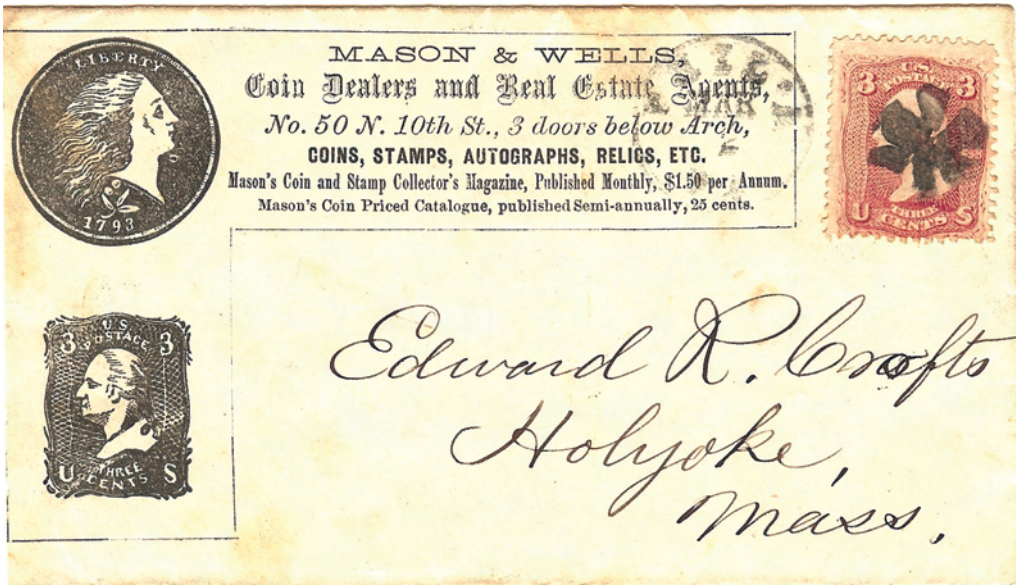 LIBERTY
1793
MASON & WELLS,
Coin Dealers and Real Estate Agents,
No. 50 N. 10th St., 3 doors below Arch,
COINS, STAMPS, AUTOGRAPHS, RELICS, ETC.
Mason's Coin and Stamp Collector's Magazine, Published Monthly, $1.50 per Annum.
Mason's Coin Priced Catalogue, published Semi-annually, 25 cents.
MAR
2
3 U.S. 3
POSTAGE
U THREE S
CENTS
3 US 3
POSTAGE
U THREE S
CENTS
Edward R. Crofts
Holyoke,
Mass.